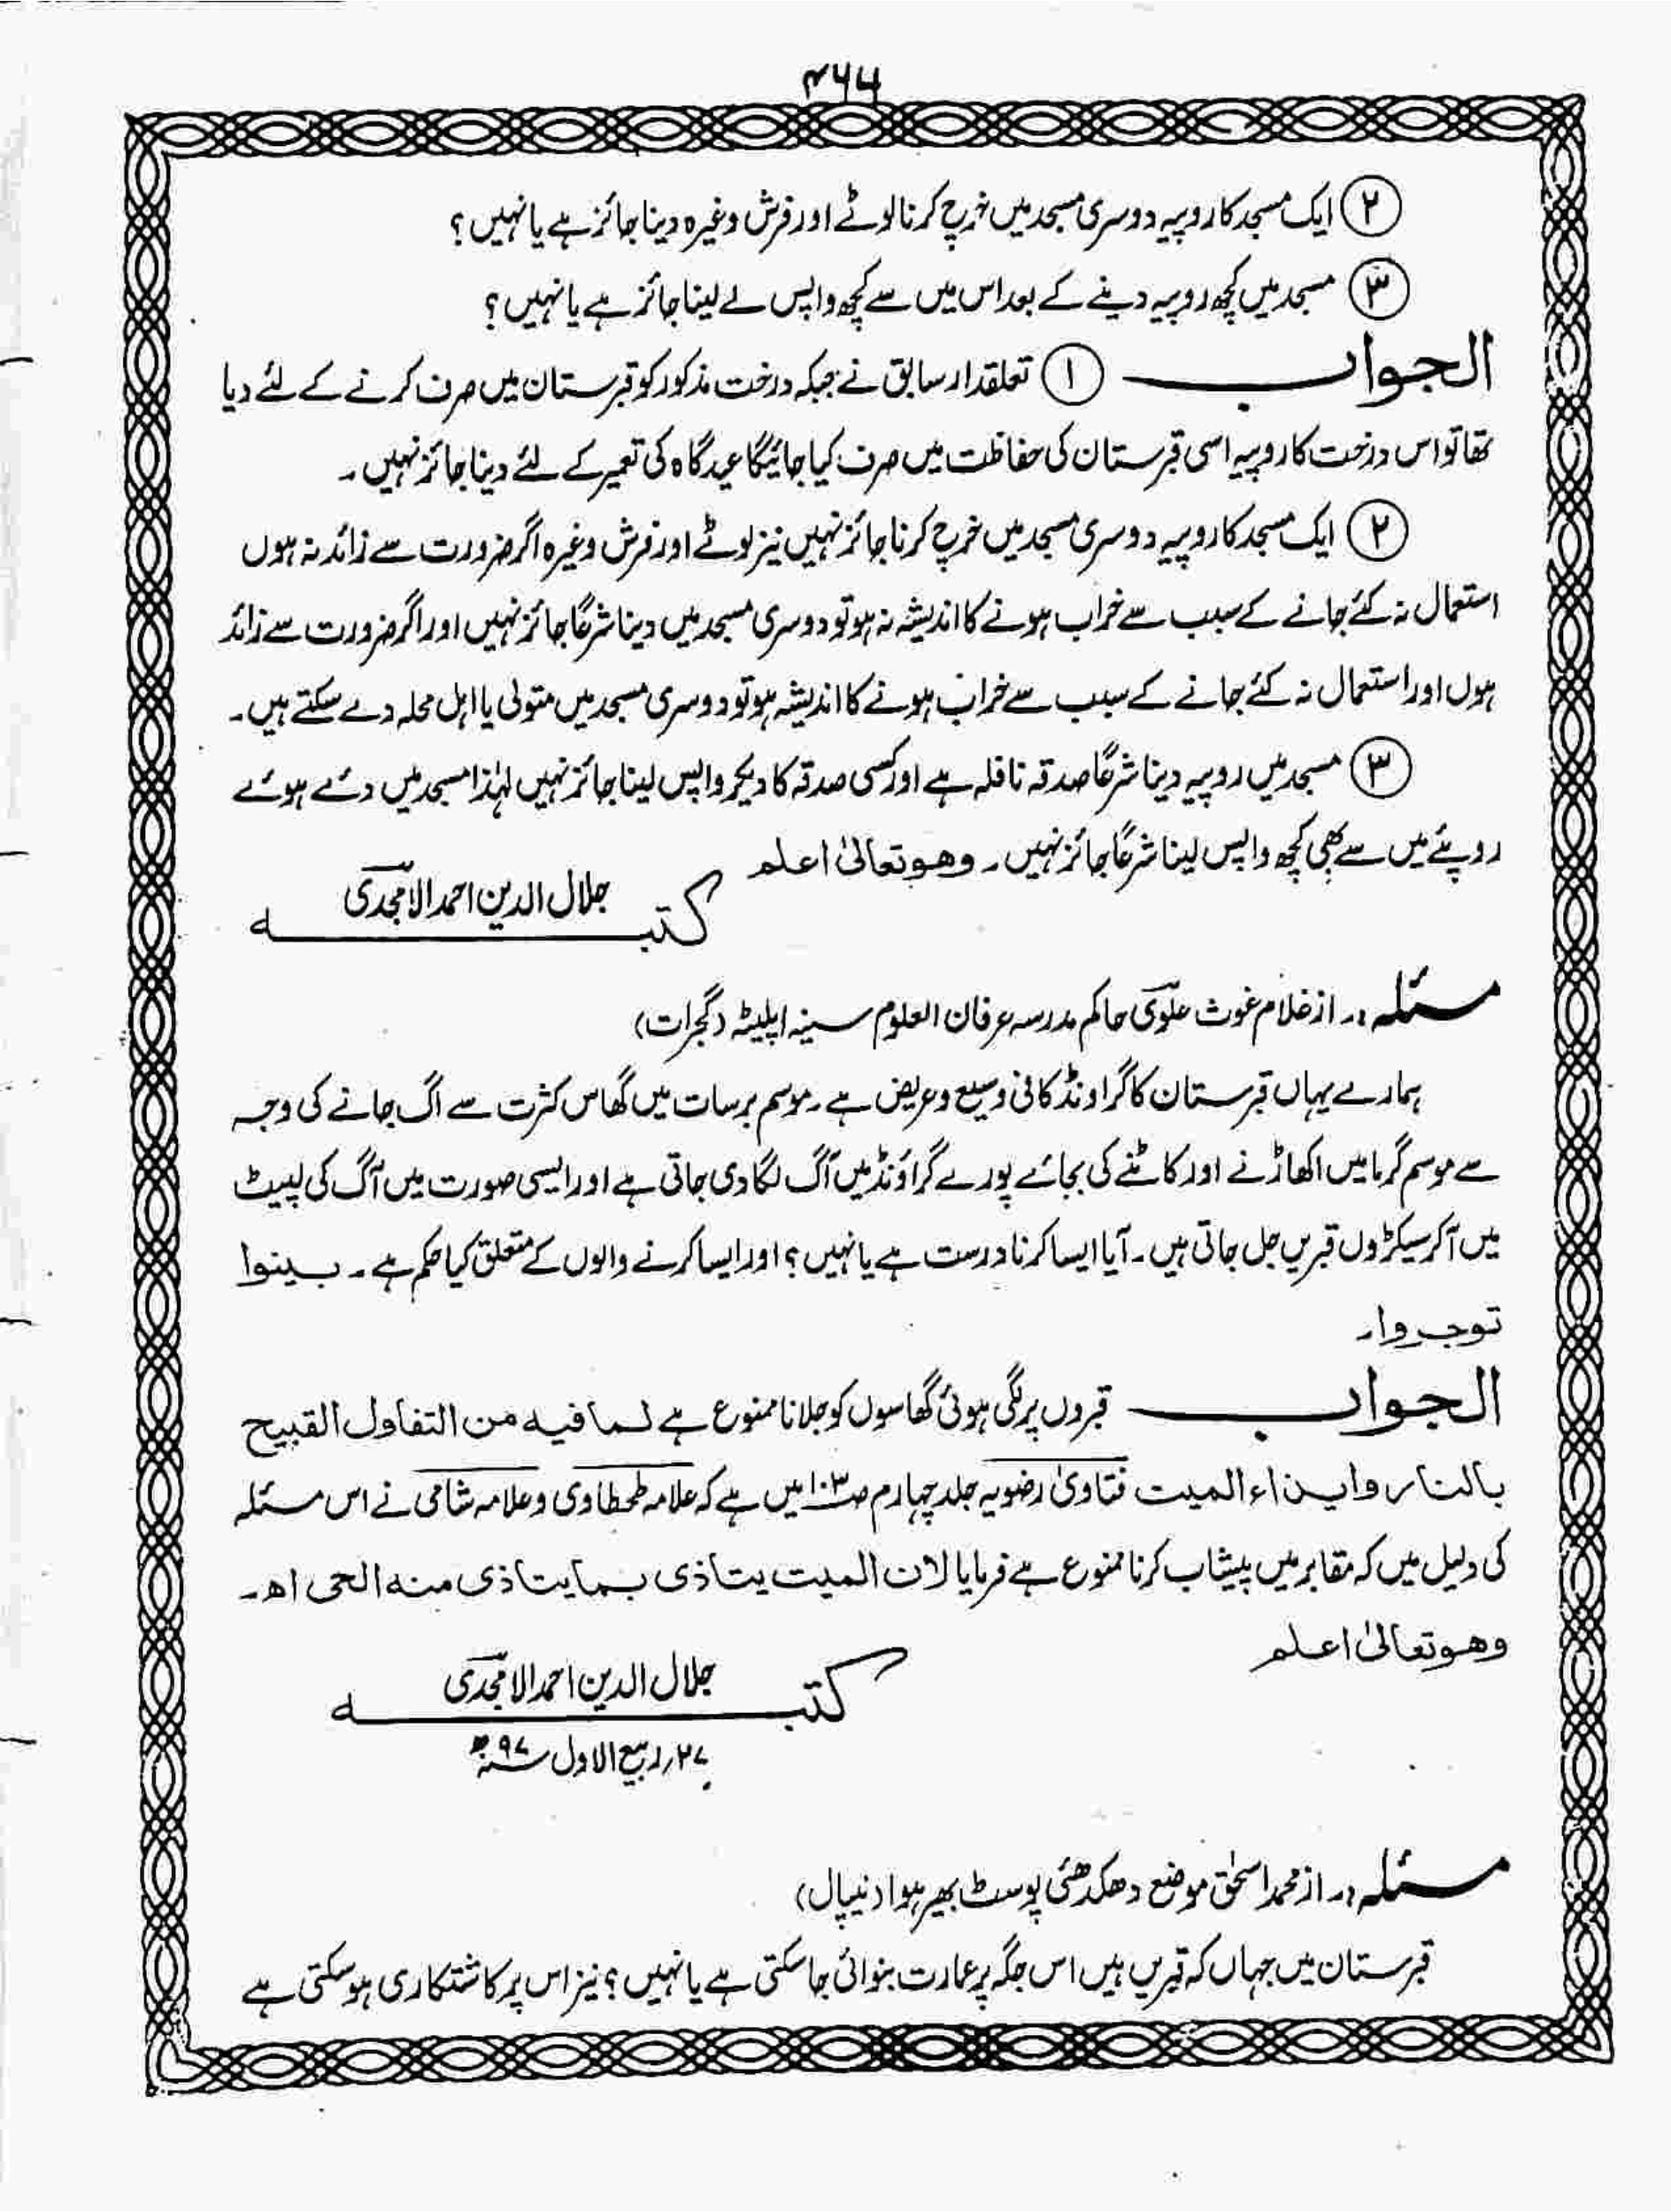 ۴۶۶
② ایک مسجد کا روپیہ دوسری مسجد میں خرچ کرنا لوٹے اور فرش وغیرہ دینا جائز ہے یا نہیں؟
③ مسجد میں کچھ روپیہ دینے کے بعد اس میں سے کچھ واپس لے لینا جائز ہے یا نہیں؟
الجواب ① تعلقدار سابق نے جبکہ درخت مذکور کو قبرستان میں صرف کرنے کے لئے دیا
تھا تو اس درخت کا روپیہ اسی قبرستان کی حفاظت میں صرف کیا جائیگا عیدگاہ کی تعمیر کے لئے دینا جائز نہیں۔
② ایک مسجد کا روپیہ دوسری مسجد میں خرچ کرنا جائز نہیں نیز لوٹے اور فرش وغیرہ اگر ضرورت سے زائد نہ ہوں
استعمال نہ کئے جانے کے سبب سے خراب ہونے کا اندیشہ نہ ہو تو دوسری مسجد میں دینا شرعًا جائز نہیں اور اگر ضرورت سے زائد
ہوں اور استعمال نہ کئے جانے کے سبب سے خراب ہونے کا اندیشہ ہو تو دوسری مسجد میں متولی یا اہل محلہ دے سکتے ہیں۔
③ مسجد میں روپیہ دینا شرعًا صدقہ نافلہ ہے اور کسی صدقہ کا دیکر واپس لینا جائز نہیں لہٰذا مسجد میں دئے ہوئے
روپئے میں سے بھی کچھ واپس لینا شرعًا جائز نہیں۔ وھو تعالیٰ اعلم
کتبہ جلال الدین احمد الامجدی
مسئلہ:۔ از غلام غوث علوی حاکم مدرسہ عرفان العلوم سینہ اپلیٹہ (گجرات)
ہمارے یہاں قبرستان کا گراونڈ کافی وسیع وعریض ہے۔ موسم برسات میں گھاس کثرت سے اگ جانے کی وجہ
سے موسم گرما میں اکھاڑنے اور کاٹنے کی بجائے پورے گراؤنڈ میں آگ لگا دی جاتی ہے اور ایسی صورت میں آگ کی لپیٹ
میں آکر سیکڑوں قبریں جل جاتی ہیں۔ آیا ایسا کرنا درست ہے یا نہیں؟ اور ایسا کرنے والوں کے متعلق کیا حکم ہے۔ بینوا
توجروا۔
الجواب قبروں پر لگی ہوئی گھاسوں کو جلانا ممنوع ہے لما فیہ من التفاول القبیح
بالنار وایذاء المیت فتاویٰ رضویہ جلد چہارم ص۱۰۳ میں ہے کہ علامہ طحطاوی وعلامہ شامی نے اس مسئلہ
کی دلیل میں کہ مقابر میں پیشاب کرنا ممنوع ہے فرمایا لان المیت یتاذی بما یتاذی منہ الحی اھ۔
وھو تعالیٰ اعلم
کتبہ جلال الدین احمد الامجدی
۲۷؍ ربیع الاول سنہ ۹۷ھ
مسئلہ:۔ از محمد اسحٰق موضع دھکدھئی پوسٹ بھیرہوا (نیپال)
قبرستان میں جہاں کہ قبریں ہیں اس جگہ پر عمارت بنوائی جا سکتی ہے یا نہیں؟ نیز اس پر کاشتکاری ہو سکتی ہے